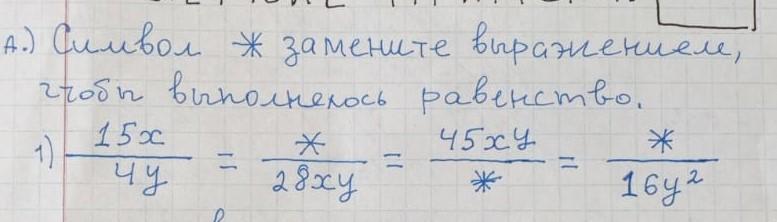 А.) Символ * замените выражением,
чтобы выполнялось равенство.
1) 15x/4y = */28xy = 45xy/* = */16y²